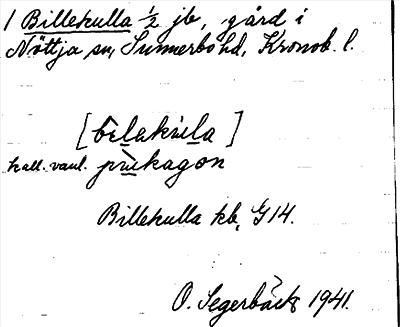 1 Billekulla ½ jb, gård i
Nöttja sn, Sunnerbo hd, Kronob. l.
[bilakula]
kall. vanl. prukagon
Billekulla kb, G14.
O. Segerbäck 1941.